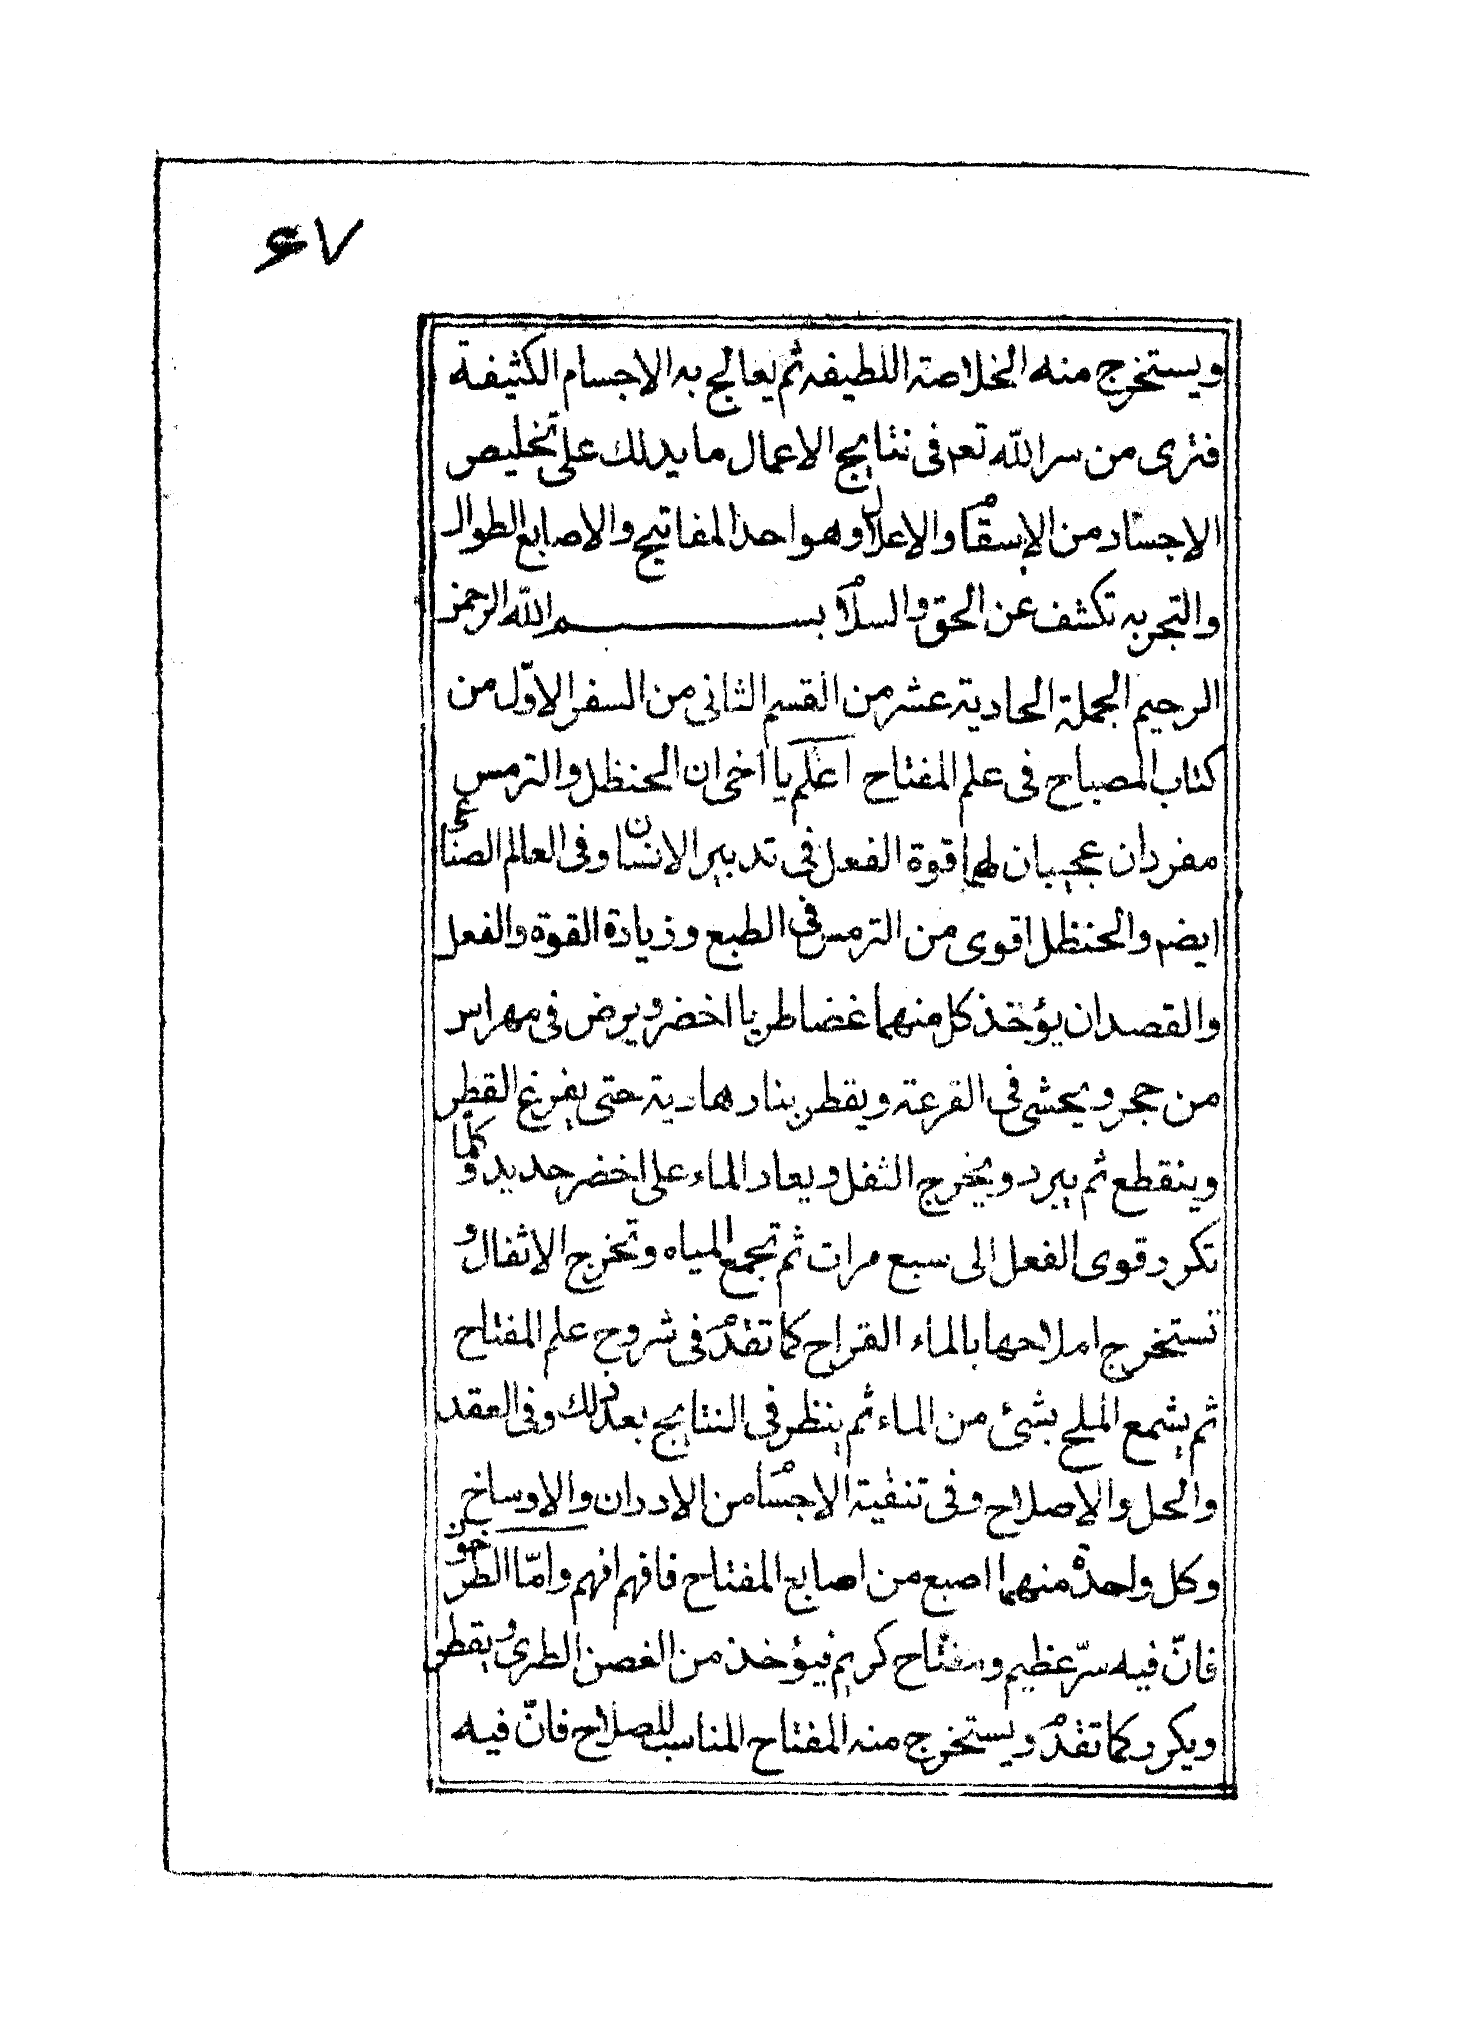 ٤٧
ويستخرج منه الخلاصة اللطيفه ثم يعالج به الاجسام الكثيفة
فترى من سر الله تعم فى نتايج الاعمال ما يدلك على تخليص
الاجساد من الاسقام والاعلال وهو احد المفاتيح والاصابع الطوال
والتجربه تكشف عن الحق والسلام بسم الله الرحمن
الرحيم الجملة الحادية عشر من القسم الثانى من السفر الاوّل من
كتاب المصباح فى علم المفتاح اعلم يا اخى ان الحنظل والترمس
مفردان عجيبان لهما قوة الفعل فى تدبير الانسان وفى العالم الصناعى
ايضم والحنظل اقوى من الترمس فى الطبع وزيادة القوة والفعل
والقصد ان يؤخذ كل منهما غضا طريا اخضر ويرض فى مهراس
من حجر ويحشى فى القرعة ويقطر بنار هادية حتى يفرغ القطر
وينقطع ثم يبرد ويخرج الثفل ويعاد الماء على اخضر جديد وكلما
تكرر قوى الفعل الى سبع مرات ثم تجمع المياه وتخرج الاثفال و
تستخرج املاحها بالماء القراح كما تقدم فى شروح علم المفتاح
ثم يشمع الملح بشئ من الماء ثم ينظر فى النتايج بعد ذلك وفى العقد
والحل والاصلاح وفى تنقية الاجسام من الادران والاوساخ
وكل واحدة منهما اصبع من اصابع المفتاح فافهم افهم وامّا الطرخون
فانّ فيه سرّ عظيم ومفتاح كريم فيؤخذ من الغصن الطرى ويقطر
ويكرر كما تقدم ويستخرج منه المفتاح المناسب للصلاح فانّ فيه